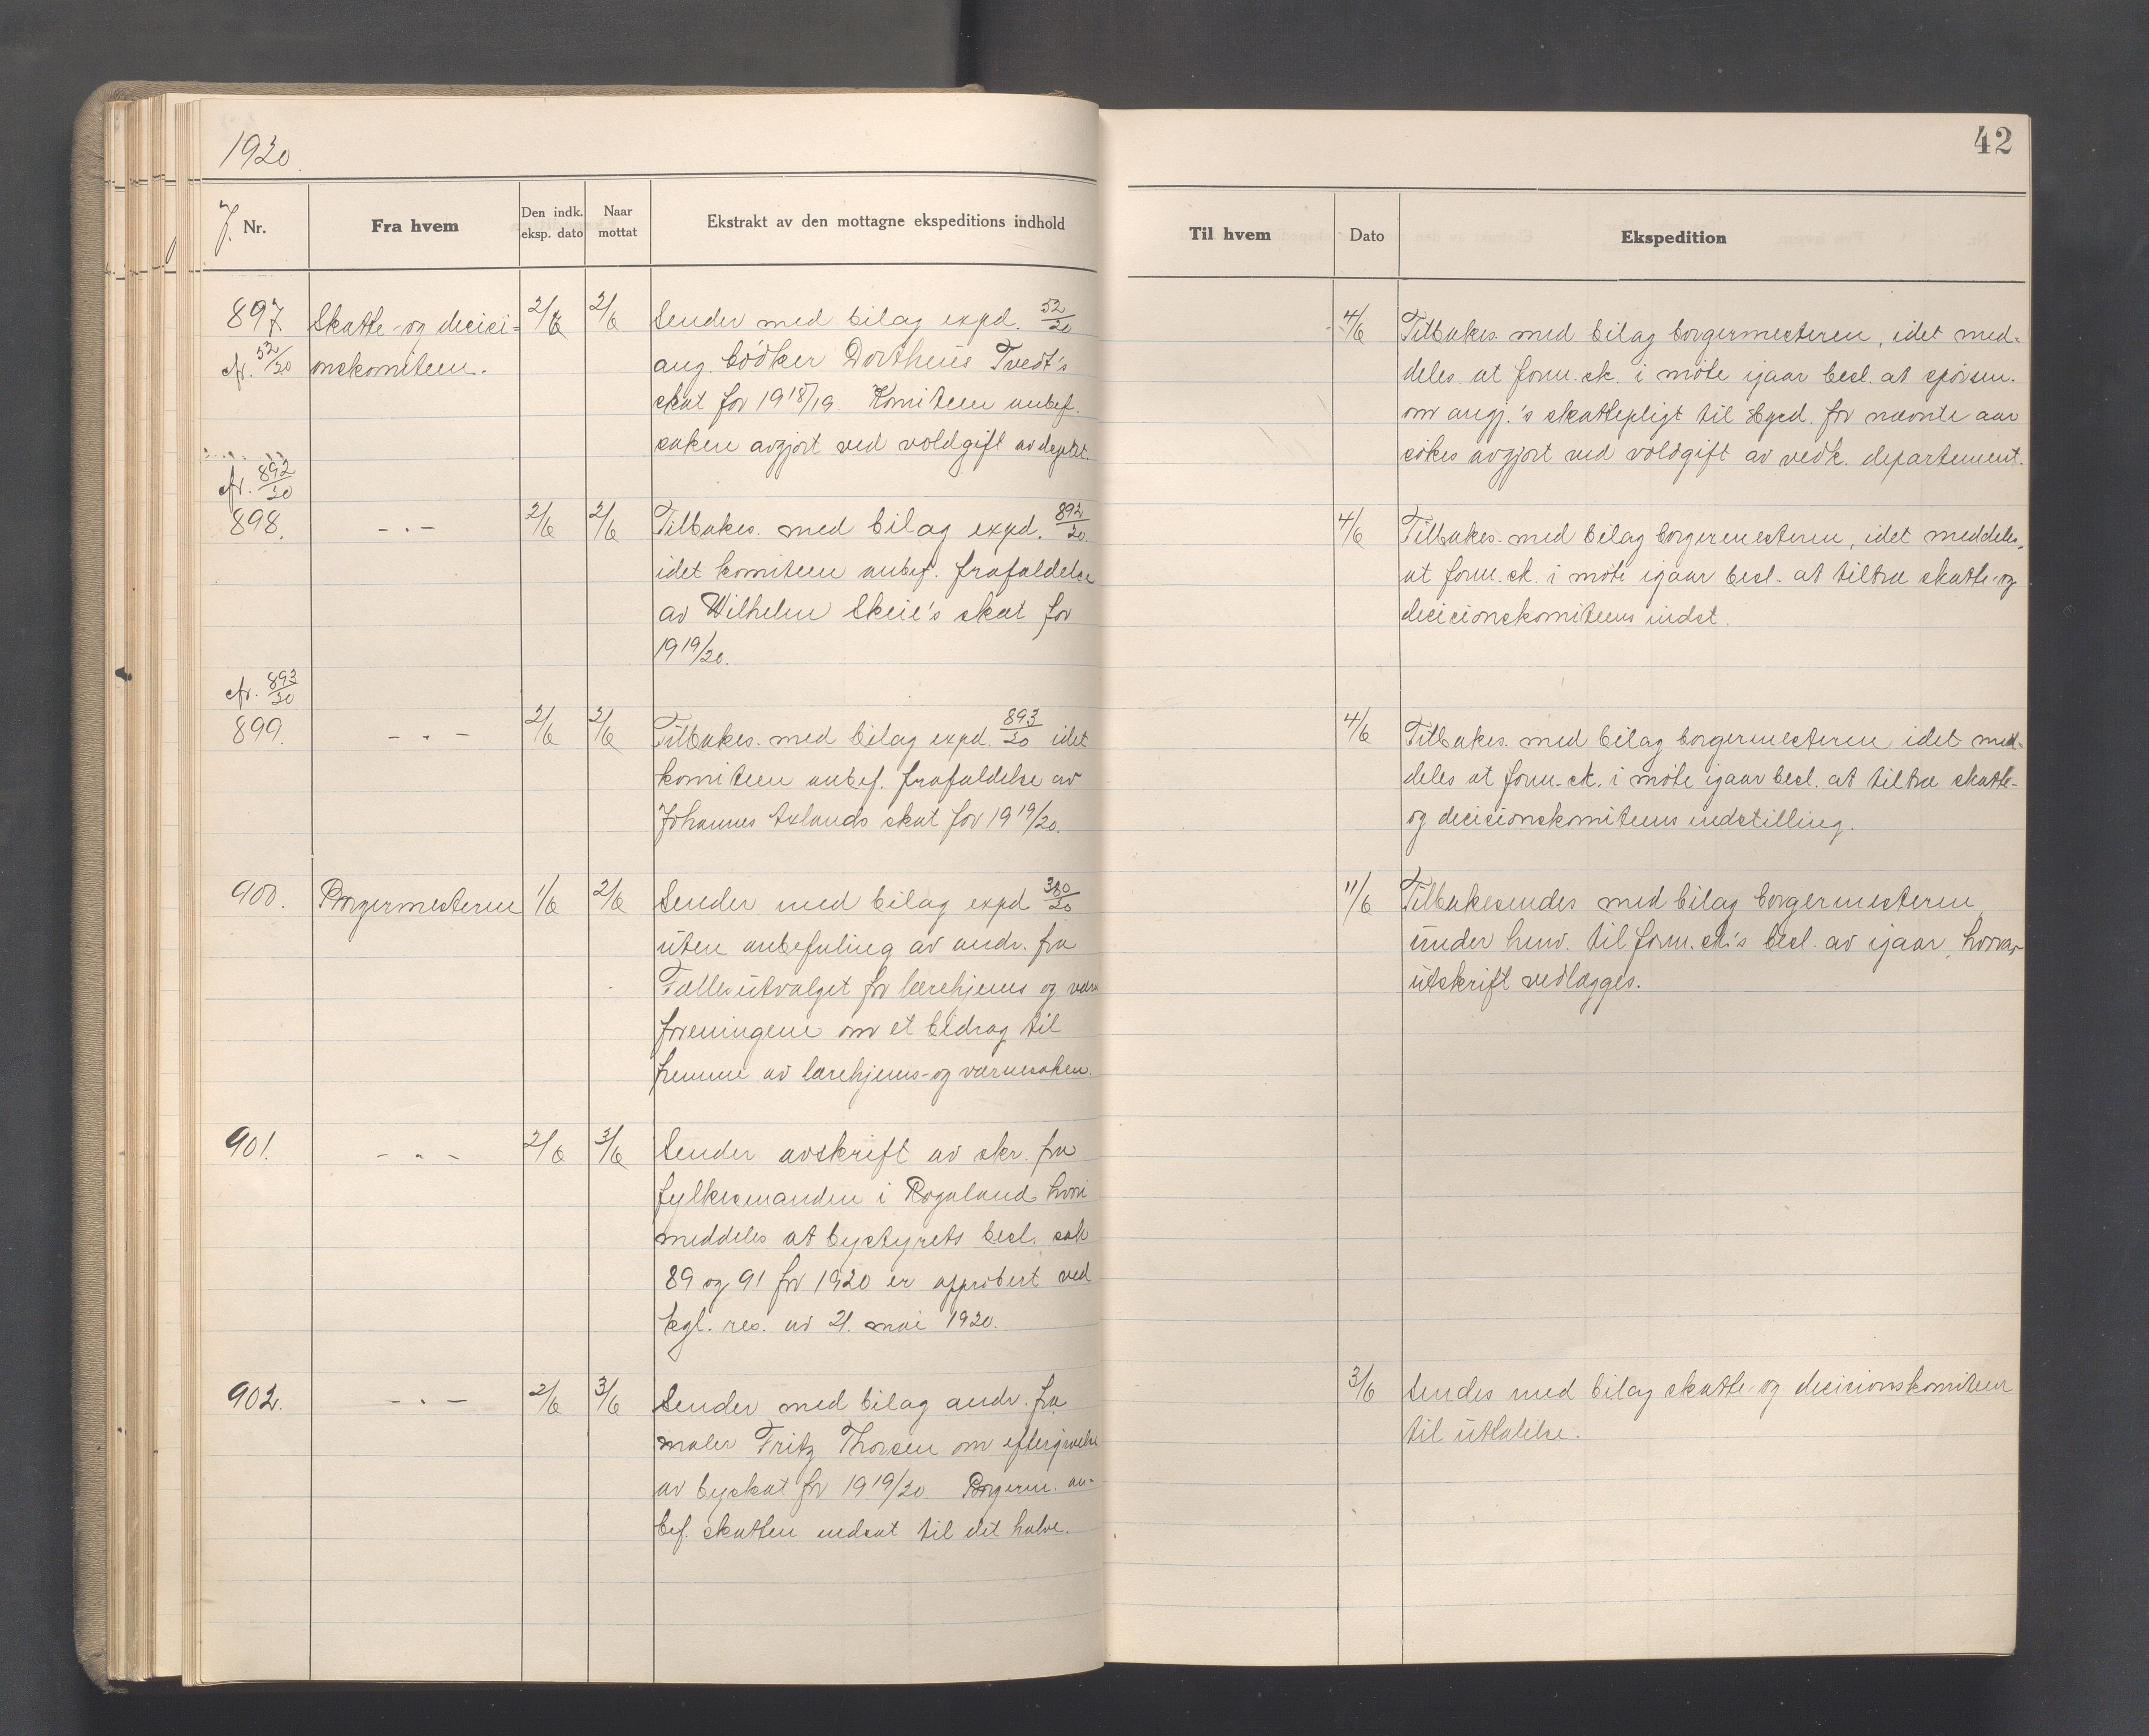 1920.
42
J. Nr.
Fra hvem
Den indk. eksp. dato
Naar mottat
Ekstrakt av den mottagne ekspeditions indhold
Til hvem
Dato
Ekspedition
897
cfr. 52/20
Skatte- og decici-
onskomiteen.
2/6
2/6
Sender med bilag expd. 52/20
ang. bödker Dortheus Tvedt's
skat for 1918/19. Komiteen anbef.
saken avgjort ved voldgift av deptet.
4/6
Tilbakes. med bilag borgermesteren, idet med-
deles at form.sk. i møte igaar besl. at spörsm.
om angj.'s skattepligt til Hgsd. for nævnte aar
sökes avgjort ved voldgift av vedk. departement.
cfr. 892/20
898.
- " -
2/6
2/6
Tilbakes. med bilag expd. 892/20
idet komiteen anbef. frafaldelse
av Wilhelm Skeie's skat for
1919/20.
4/6
Tilbakes. med bilag borgermesteren, idet meddeles,
at form.sk. i møte igaar besl. at tiltræ skatte- og
decicionskomiteens indst.
cfr. 893/20
899.
- " -
2/6
2/6
Tilbakes. med bilag expd. 893/20 idet
komiteen anbef. frafaldelse av
Johannes skat for 1919/20.
4/6
Tilbakes. med bilag borgermesteren idet med-
deles at form.sk. i møte igaar besl. at tiltræ skatte-
og decicionskomiteens indstilling.
900.
Borgermesteren
1/6
2/6
Sender med bilag expd 380/20
uten anbefaling av andr. fra
Fællesutvalget for lærehjems og værne
foreningene om et bidrag til
fremme av lærehjems- og værnesaken.
11/6
Tilbakesendes med bilag borgermesteren,
under henv. til form.sk's besl. av igaar, hvorav
utskrift vedlægges.
901.
- " -
2/6
3/6
Sender avskrift av skr. fra
fylkesmanden i Rogaland hvori
meddeles at bystyrets besl. sak
89 og 91 for 1920 er approbert ved
kgl. res. av 21. mai 1920.
902.
- " -
2/6
3/6
Sender med bilag andr. fra
maler Fritz Thorsen om eftergivelse
av byskat for 1919/20. Borgerm. an-
bef. skatten nedsat til det halve.
3/6
Sendes med bilag skatte- og decicionskomiteen
til uttalelse.